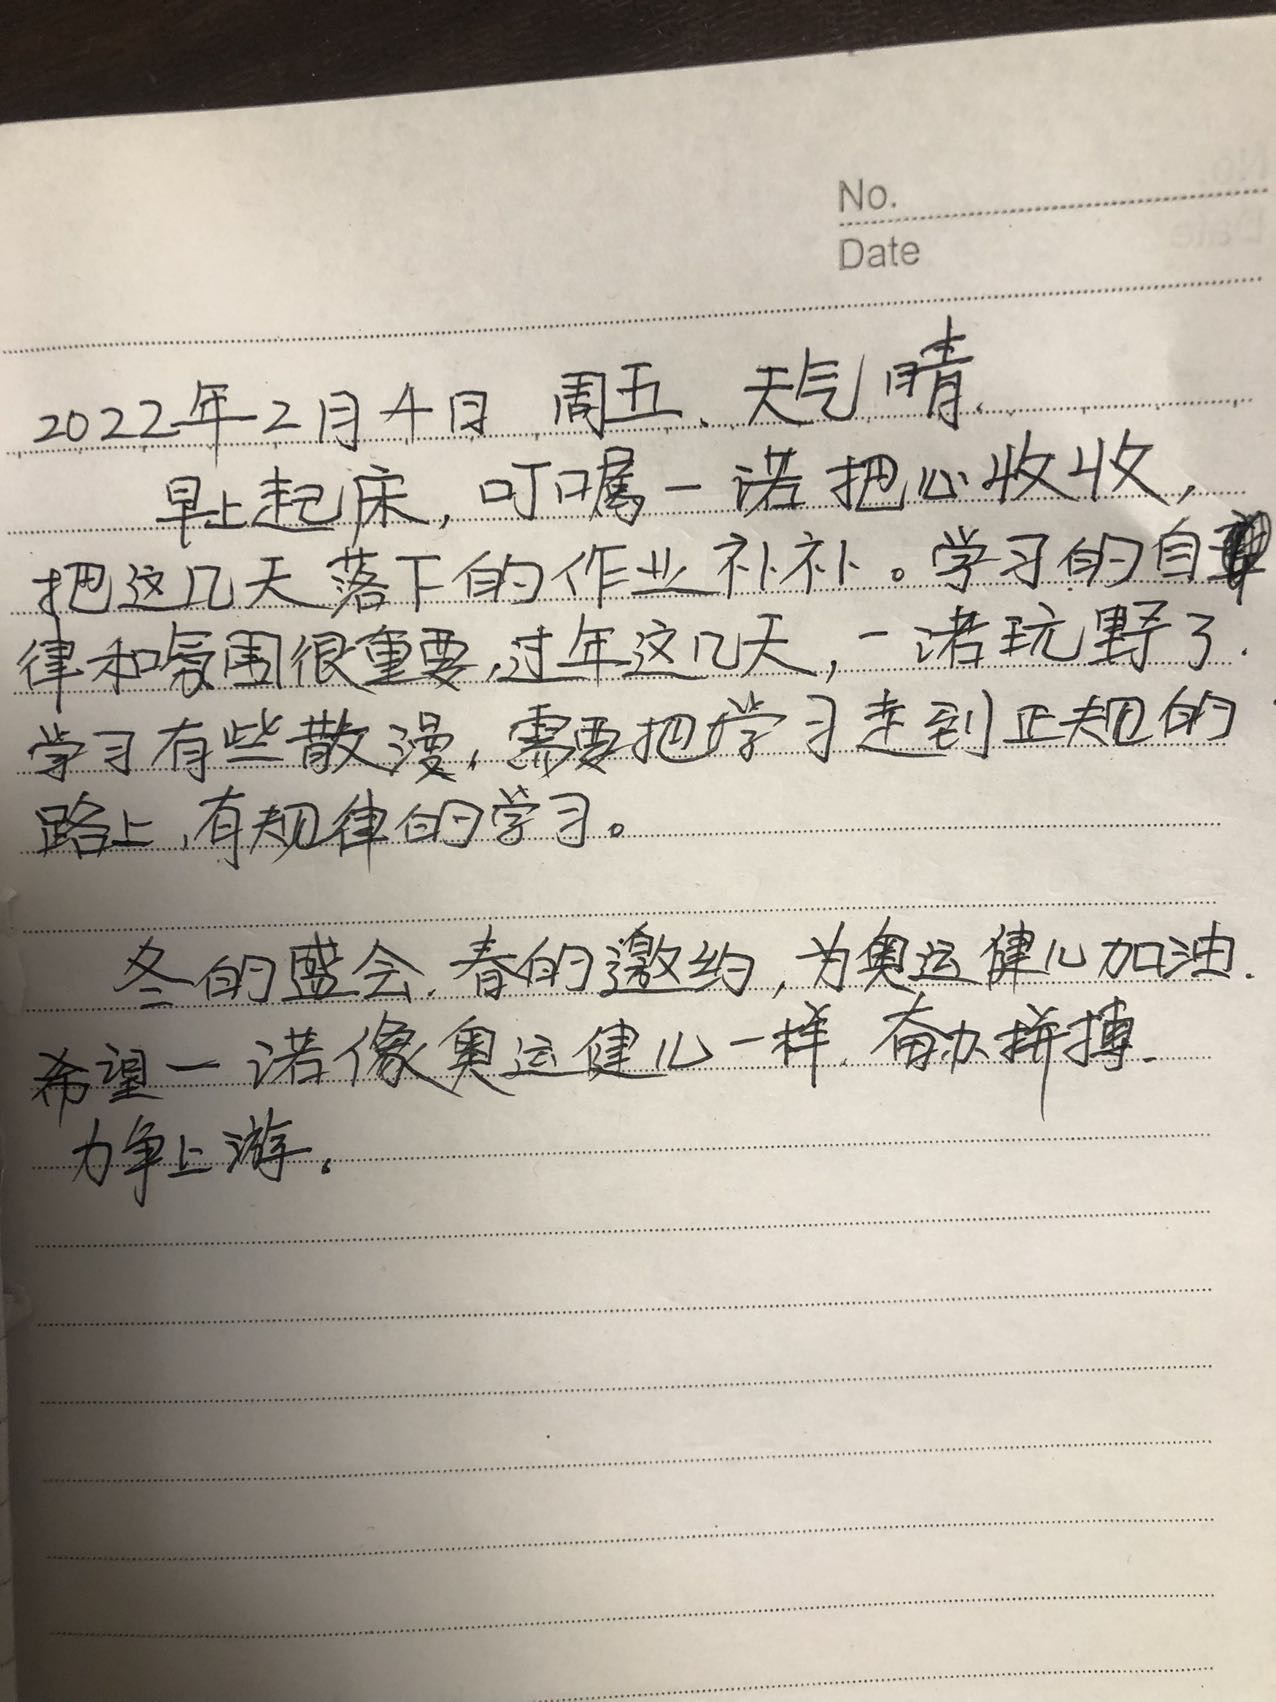 No.
Date
2022年2月4日 周五、天气晴.
早上起床,叮嘱一诺把心收收,
把这几天落下的作业补补。学习的自
律和氛围很重要,过年这几天,一诺玩野了.
学习有些散漫,需要把学习走到正规的
路上,有规律的学习。
冬的盛会.春的邀约,为奥运健儿加油.
希望一诺像奥运健儿一样.奋力拼搏.
力争上游。